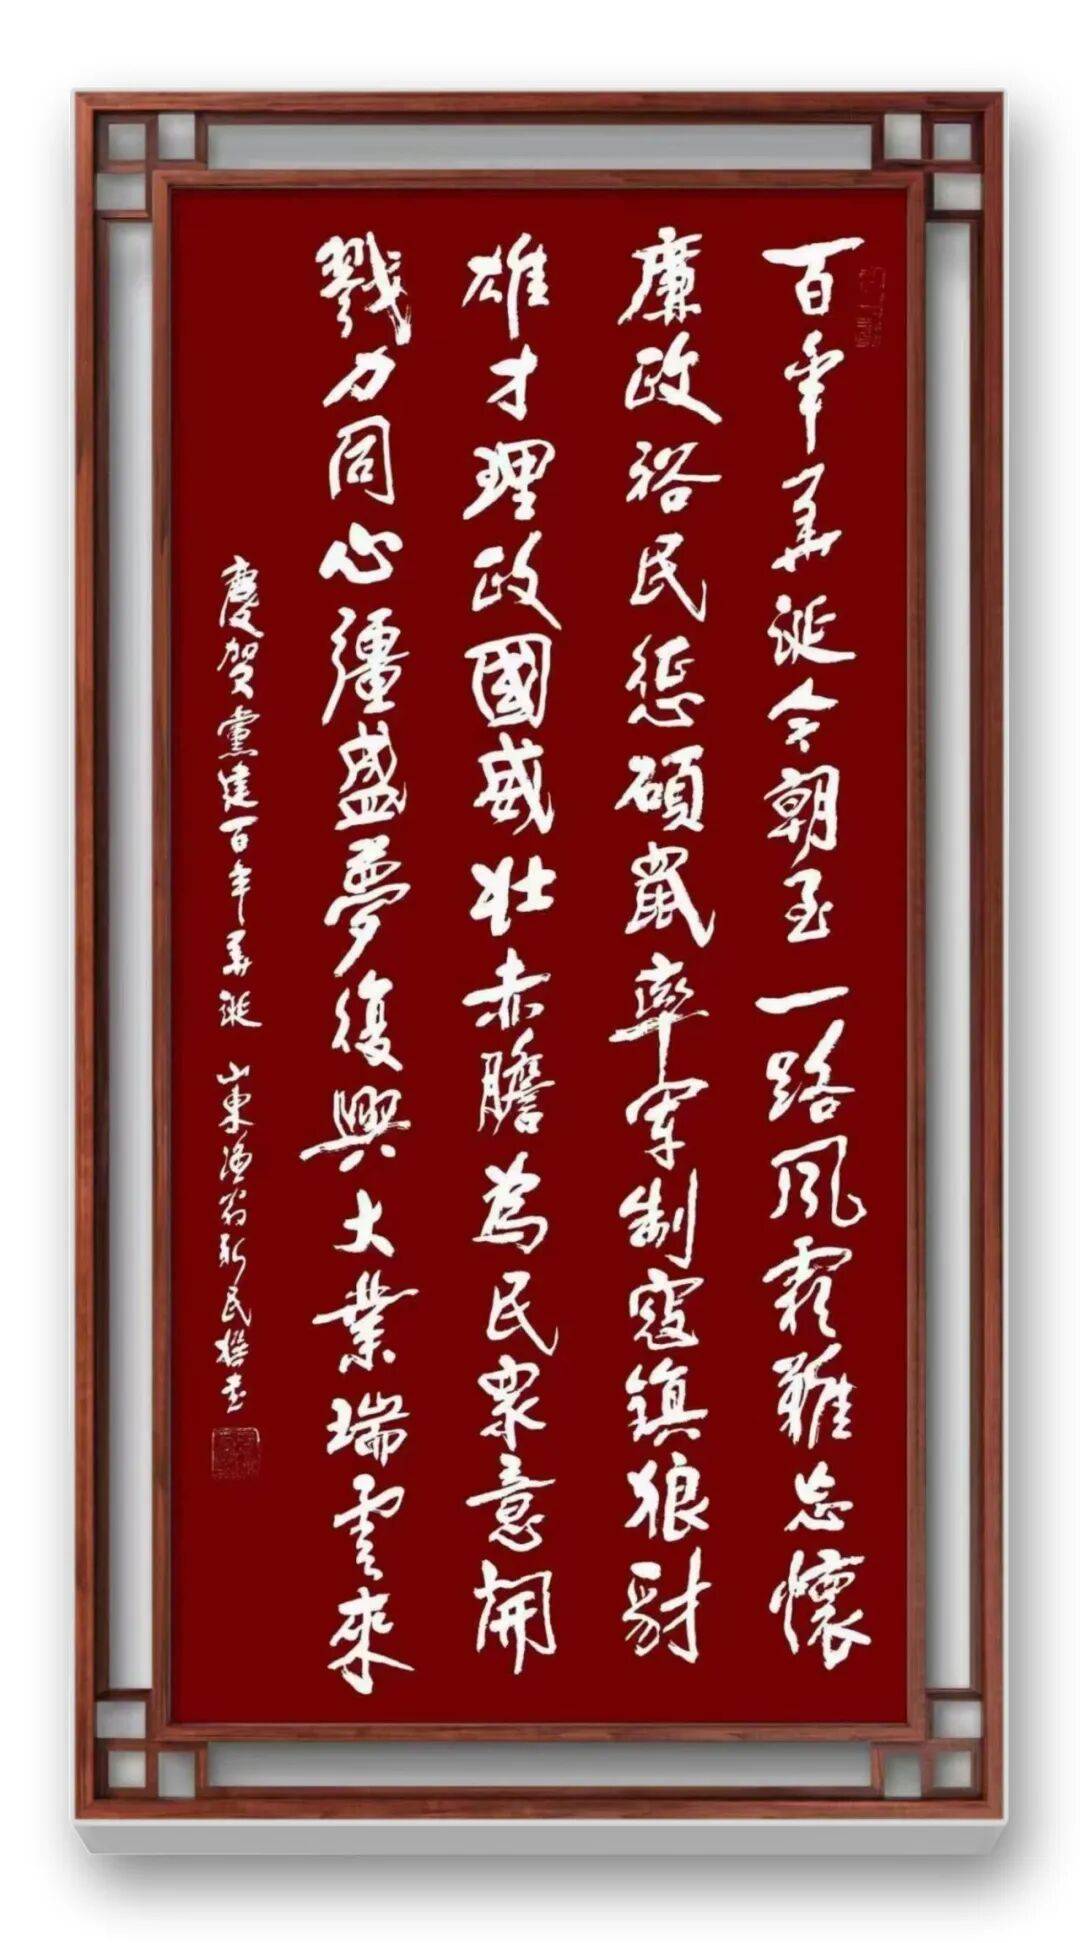 百年華誕今朝至一路風霜難忘懷
廉政裕民懲碩鼠率軍制寇鎮狼豺
雄才理政國威壯赤膽為民眾意開
戮力同心彊盛夢復興大業瑞雲來
慶賀黨建百年華誕 山東漁翁新民撰書